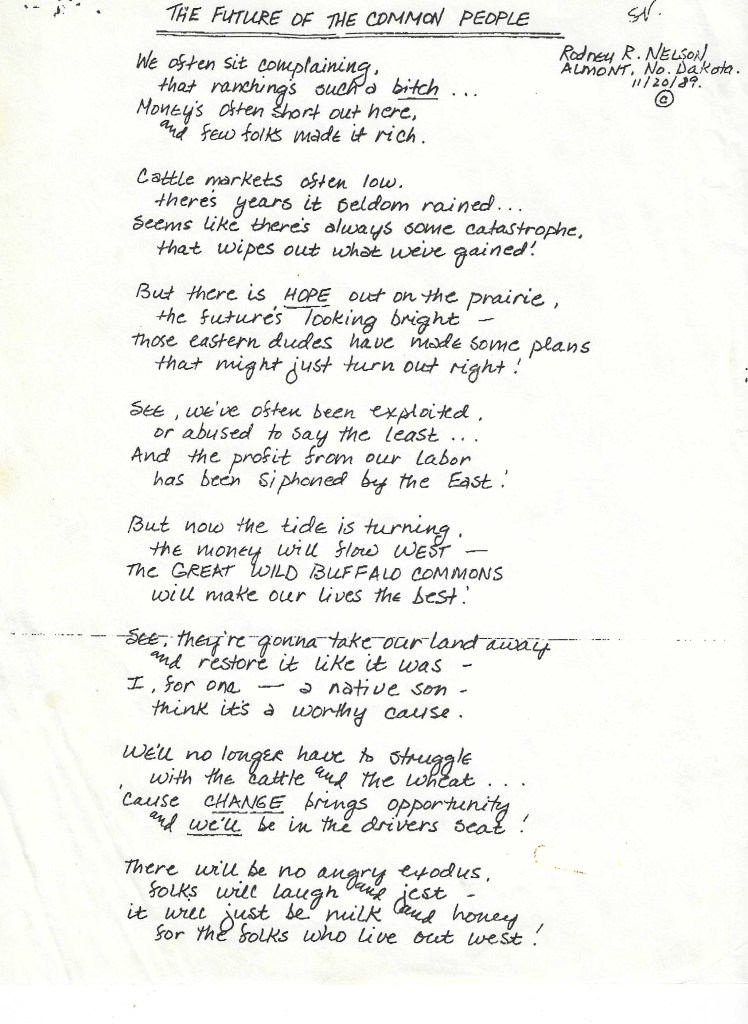 THE FUTURE OF THE COMMON PEOPLE
SN.
Rodney R. NELSON
ALMONT, No. Dakota.
11/20/89.
©
We often sit complaining,
that ranchings such a bitch ...
Money's often short out here,
and few folks made it rich.
Cattle markets often low.
there's years it seldom rained...
Seems like there's always some catastrophe,
that wipes out what we've gained!
But there is HOPE out on the prairie,
the future's looking bright —
those eastern dudes have made some plans
that might just turn out right!
SEE, we've often been exploited,
or abused to say the least ...
And the profit from our labor
has been siphoned by the East!
But now the tide is turning,
the money will flow WEST —
The GREAT WILD BUFFALO COMMONS
will make our lives the best!
SEE, they're gonna take our land away
and restore it like it was -
I, for one — a native son -
think it's a worthy cause.
WE'll no longer have to struggle
with the cattle and the wheat ...
'cause CHANGE brings opportunity
and we'll be in the drivers seat!
There will be no angry exodus,
folks will laugh and jest -
it will just be milk and honey
for the folks who live out west!